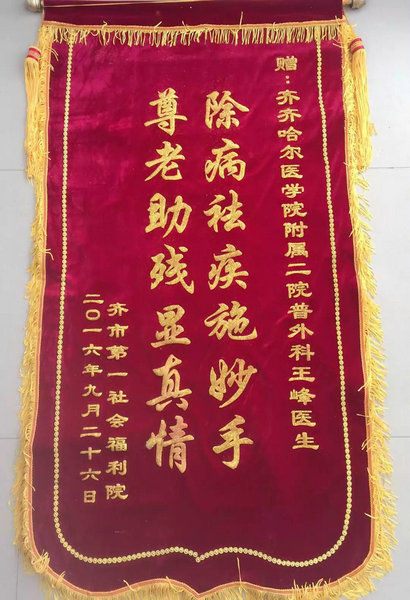 赠:齐齐哈尔医学院附属二院普外科王峰医生
除病祛疾施妙手
尊老助残显真情
齐市第一社会福利院
二〇一六年九月二十六日